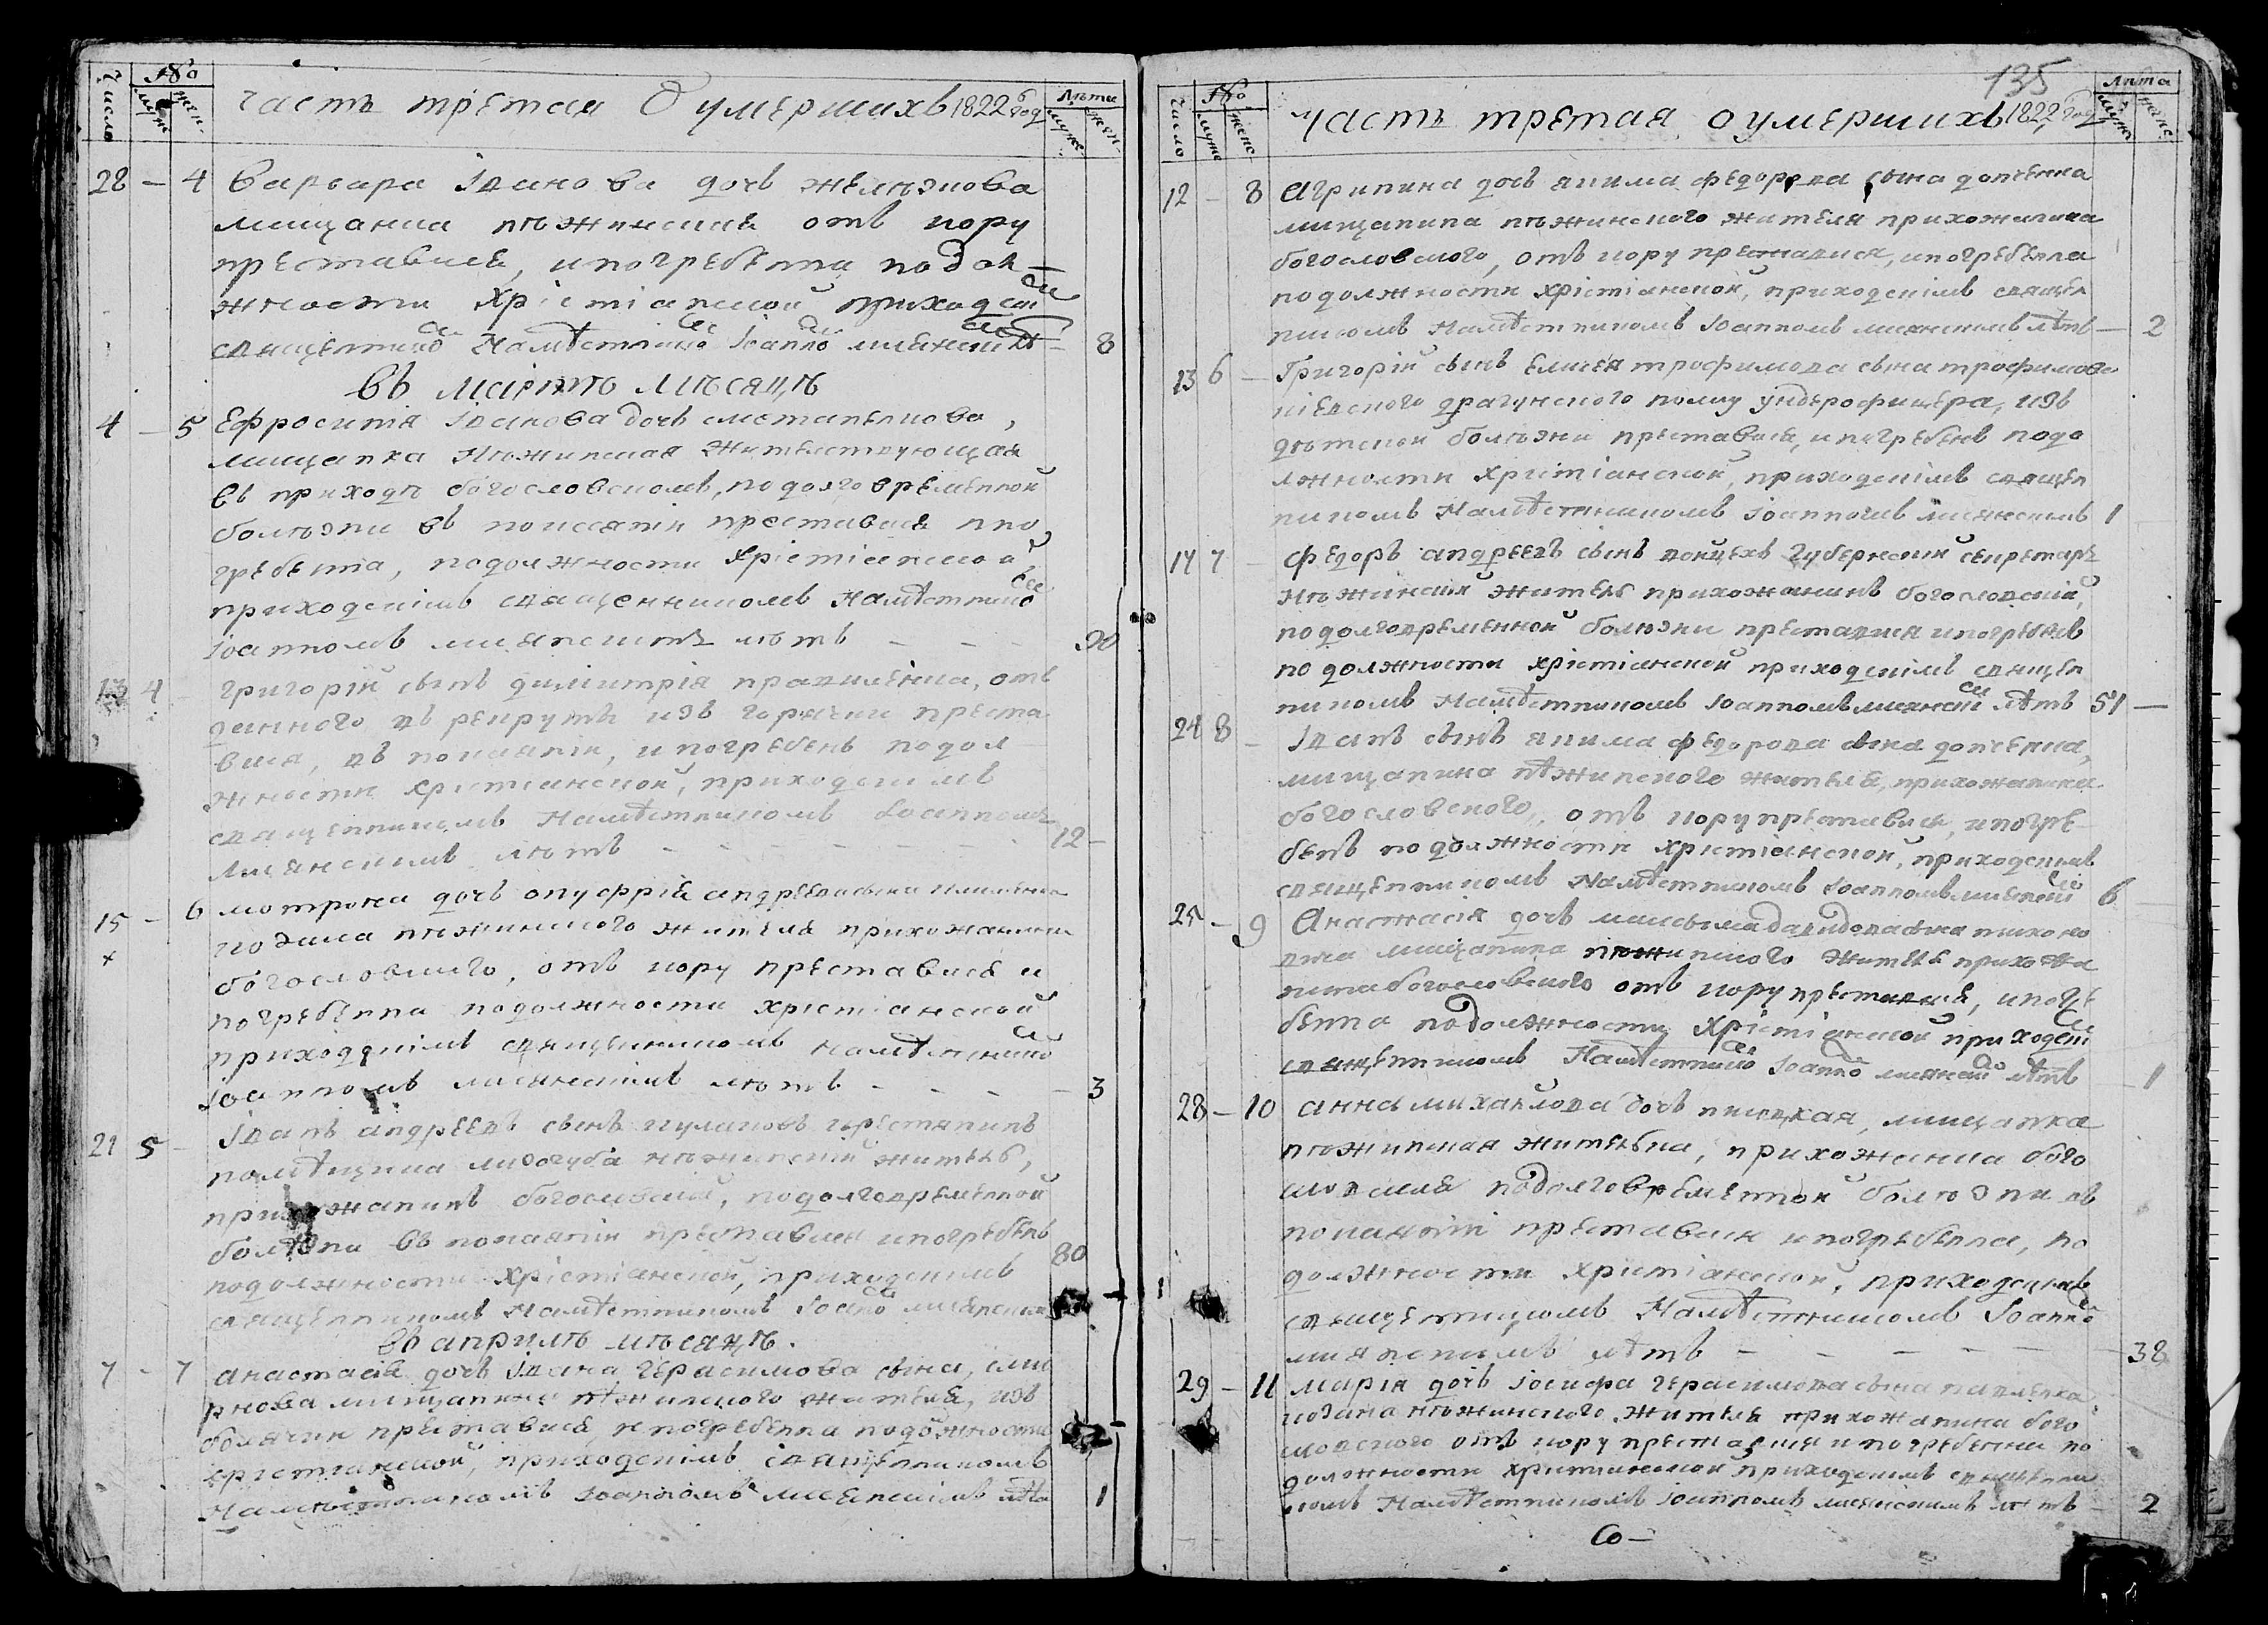 Число №о муж жен
часть третая О умершихъ 1822 год
Лѣта муже жен
28 — 4 Варвара Іванова дочъ желѣзнова
мищанка нѣжинская отъ кору
преставися, и погребенна по дол—
жности Хрістіанской приходски
священнико Намѣстнико Іоанно
8
въ мартѣ мѣсяцѣ
4 — 5 Ефросинія Іванова дочъ
мищанка Нѣжинская жителствующая
въ приходѣ богословскомъ, по долговременной
болѣзни въ покаянія преставися и по
гребенна, по должности Хрістіанской
приходскімъ священникомъ Намѣстнико
Іоанномъ лѣтъ — — — 90
13 4 — григорій сынъ димитрія, отъ
данного въ рекрутъ изъ горячки преста
вися, въ покаянія, и погребенъ по дол
жности хрістіанской, приходскимъ
священникомъ Намѣстникомъ Іоанномъ
лѣтъ — — — — 12 —
15 — 6 мотрона дочъ онуфрія андреева сына
козака нѣжинского жителя прихожанина
богословского, отъ кору преставися и
погребенна по должности хрістіанской
приходскімъ священникомъ намѣстнико
Іоанномъ лѣтъ — — — 3
21 5 — Іванъ андреевъ сынъ крестянинъ
помѣщика лизогуба нѣжинскій житель,
прихожанинъ богословскій, по долговременной
болѣзни въ покаянія преставися и погребенъ
80
по должности хрістіанской, приходскимъ
священникомъ Намѣстникомъ Іоано
въ априлѣ мѣсяцѣ.
7 — 7 анастасія дочъ Івана герасимова сына, сми
рнова мищанина нѣжинского жителя, изъ
преставися и погребенна по должности
хрістіанской, приходскімъ священникомъ
Намѣстникомъ Іоанномъ 1
135
Число №о муже женс
часть третая о умершихъ 1822 год
Лѣта муже женс
12 — 8 Агрипина дочъ якима федорова сына
мищанина нѣжинского жителя прихожанина
богословского, отъ кору преставися, и погребенна
по должности хрістіанской, приходскімъ священ
никомъ Намѣстникомъ Іоанномъ лѣтъ — 2
13 6 — Григорій сынъ елисея трофимова сына трофимова
кіевского драгунского полку ундерофицера, изъ
дѣтской болѣзни преставися, и погребенъ по до
лжности хрістіанской, приходскімъ священ
никомъ Намѣстникомъ Іоанномъ 1 —
14 7 — Федоръ андреевъ сынъ губернскій секретарь
Нѣжинскій житель прихожанинъ богословскій,
по долговременной болѣзни преставися и погребенъ
по должности хрістіанской приходскімъ священ
никомъ Намѣстникомъ Іоанномъ лѣтъ 51 —
24 8 — Іванъ сынъ якима федорова сына
мищанина нѣжинского жителя, прихожанина
богословского, отъ кору преставися, и погре
бенъ по должности хрістіанской, приходскімъ
священникомъ Намѣстникомъ Іоанномъ 6
25 — 9 Анастасія дочъ давидова сына
мищанина нѣжинского жителя прихожа
нина богословского отъ кору преставися, и погре
бенна по должности Хрістіанской приходски
священникомъ Намѣстнико Іоанно лѣтъ 1
28 — 10 анна михаилова дочъ, мищанка
нѣжинская жителка, прихожанка бого
словская по долговременной болѣзни въ
покаяніи преставися и погребенна, по
должности хрістіанской, приходскімъ
священникомъ Намѣстникомъ Іоанно
лѣтъ — — — — — 38
29 — 11 марія дочъ Іосифа герасимова сына павленка
козака нѣжинского жителя прихожанина бого
словского отъ кору преставися и погребенна по
должности хрістіанской приходскімъ священни
комъ Намѣстникомъ Іоанномъ лѣтъ — 2
Со—